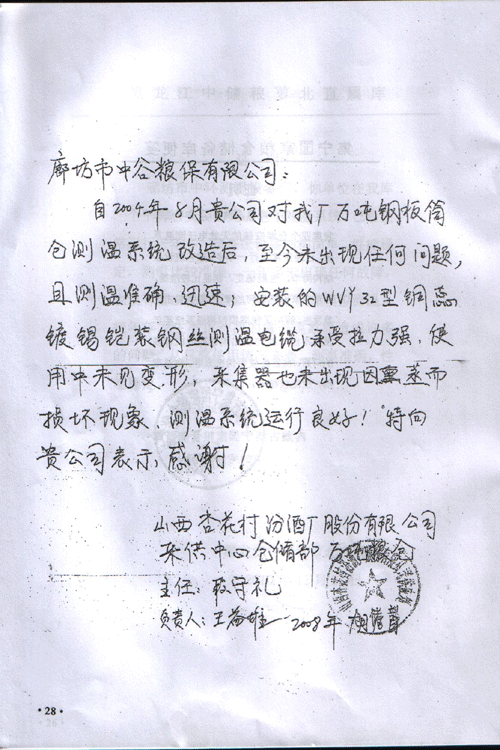 廊坊市中谷粮保有限公司:
自2004年8月贵公司对我厂万吨钢板筒
仓测温系统改造后,至今未出现任何问题,
且测温准确、迅速;安装的WVY32型铜芯
镀锡铠装钢丝测温电缆承受拉力强,使
用中未见变形,采集器也未出现因熏蒸而
损坏现象,测温系统运行良好!特向
贵公司表示感谢!
山西杏花村汾酒厂股份有限公司
采供中心仓储部万吨粮仓
主任:守礼
负责人:王 2008年
·28·